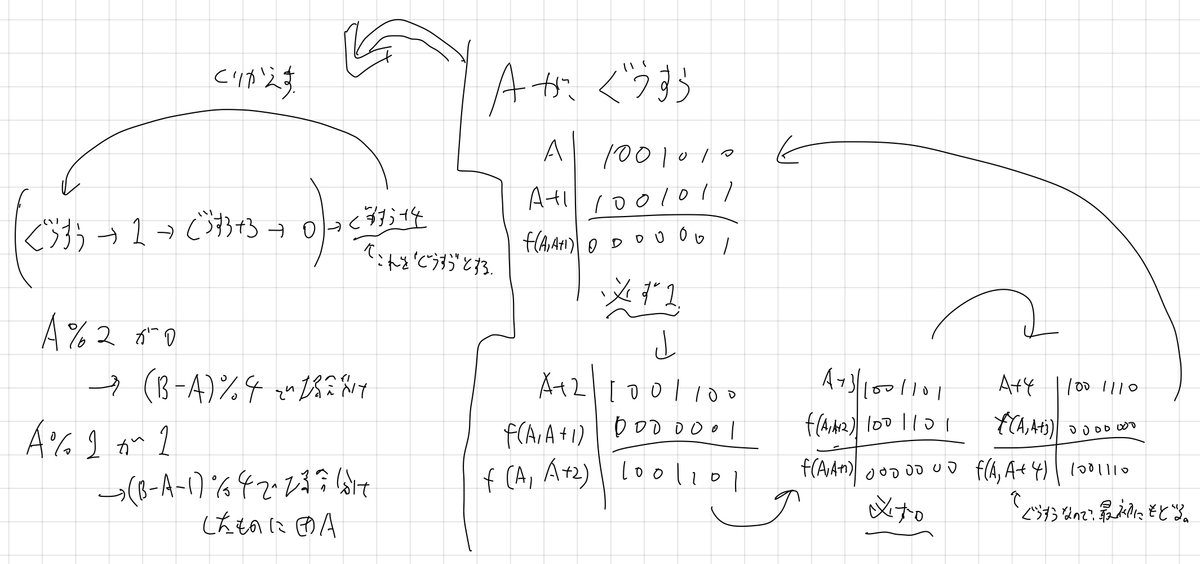 くりかえす
(ぐうすう → 1 → ぐうすう+3 → 0) → ぐうすう+4
↑これを"ぐうすう"とする。
A%2 が 0
→ (B-A)%4 で場合分け
A%2 が 1
→(B-A-1)%4で場合分け
したものに⊕A
Aが、ぐうすう
A 1001010
A+1 1001011
f(A,A+1) 0000001
必ず1
↓
A+2 1001100
f(A,A+1) 0000001
f(A,A+2) 1001101
A+3 1001101
f(A,A+2) 1001101
f(A,A+1) 0000000
必ず0
A+4 1001110
f(A,A+3) 0000000
f(A,A+4) 1001110
↑ぐうすうなので、最初にもどる。